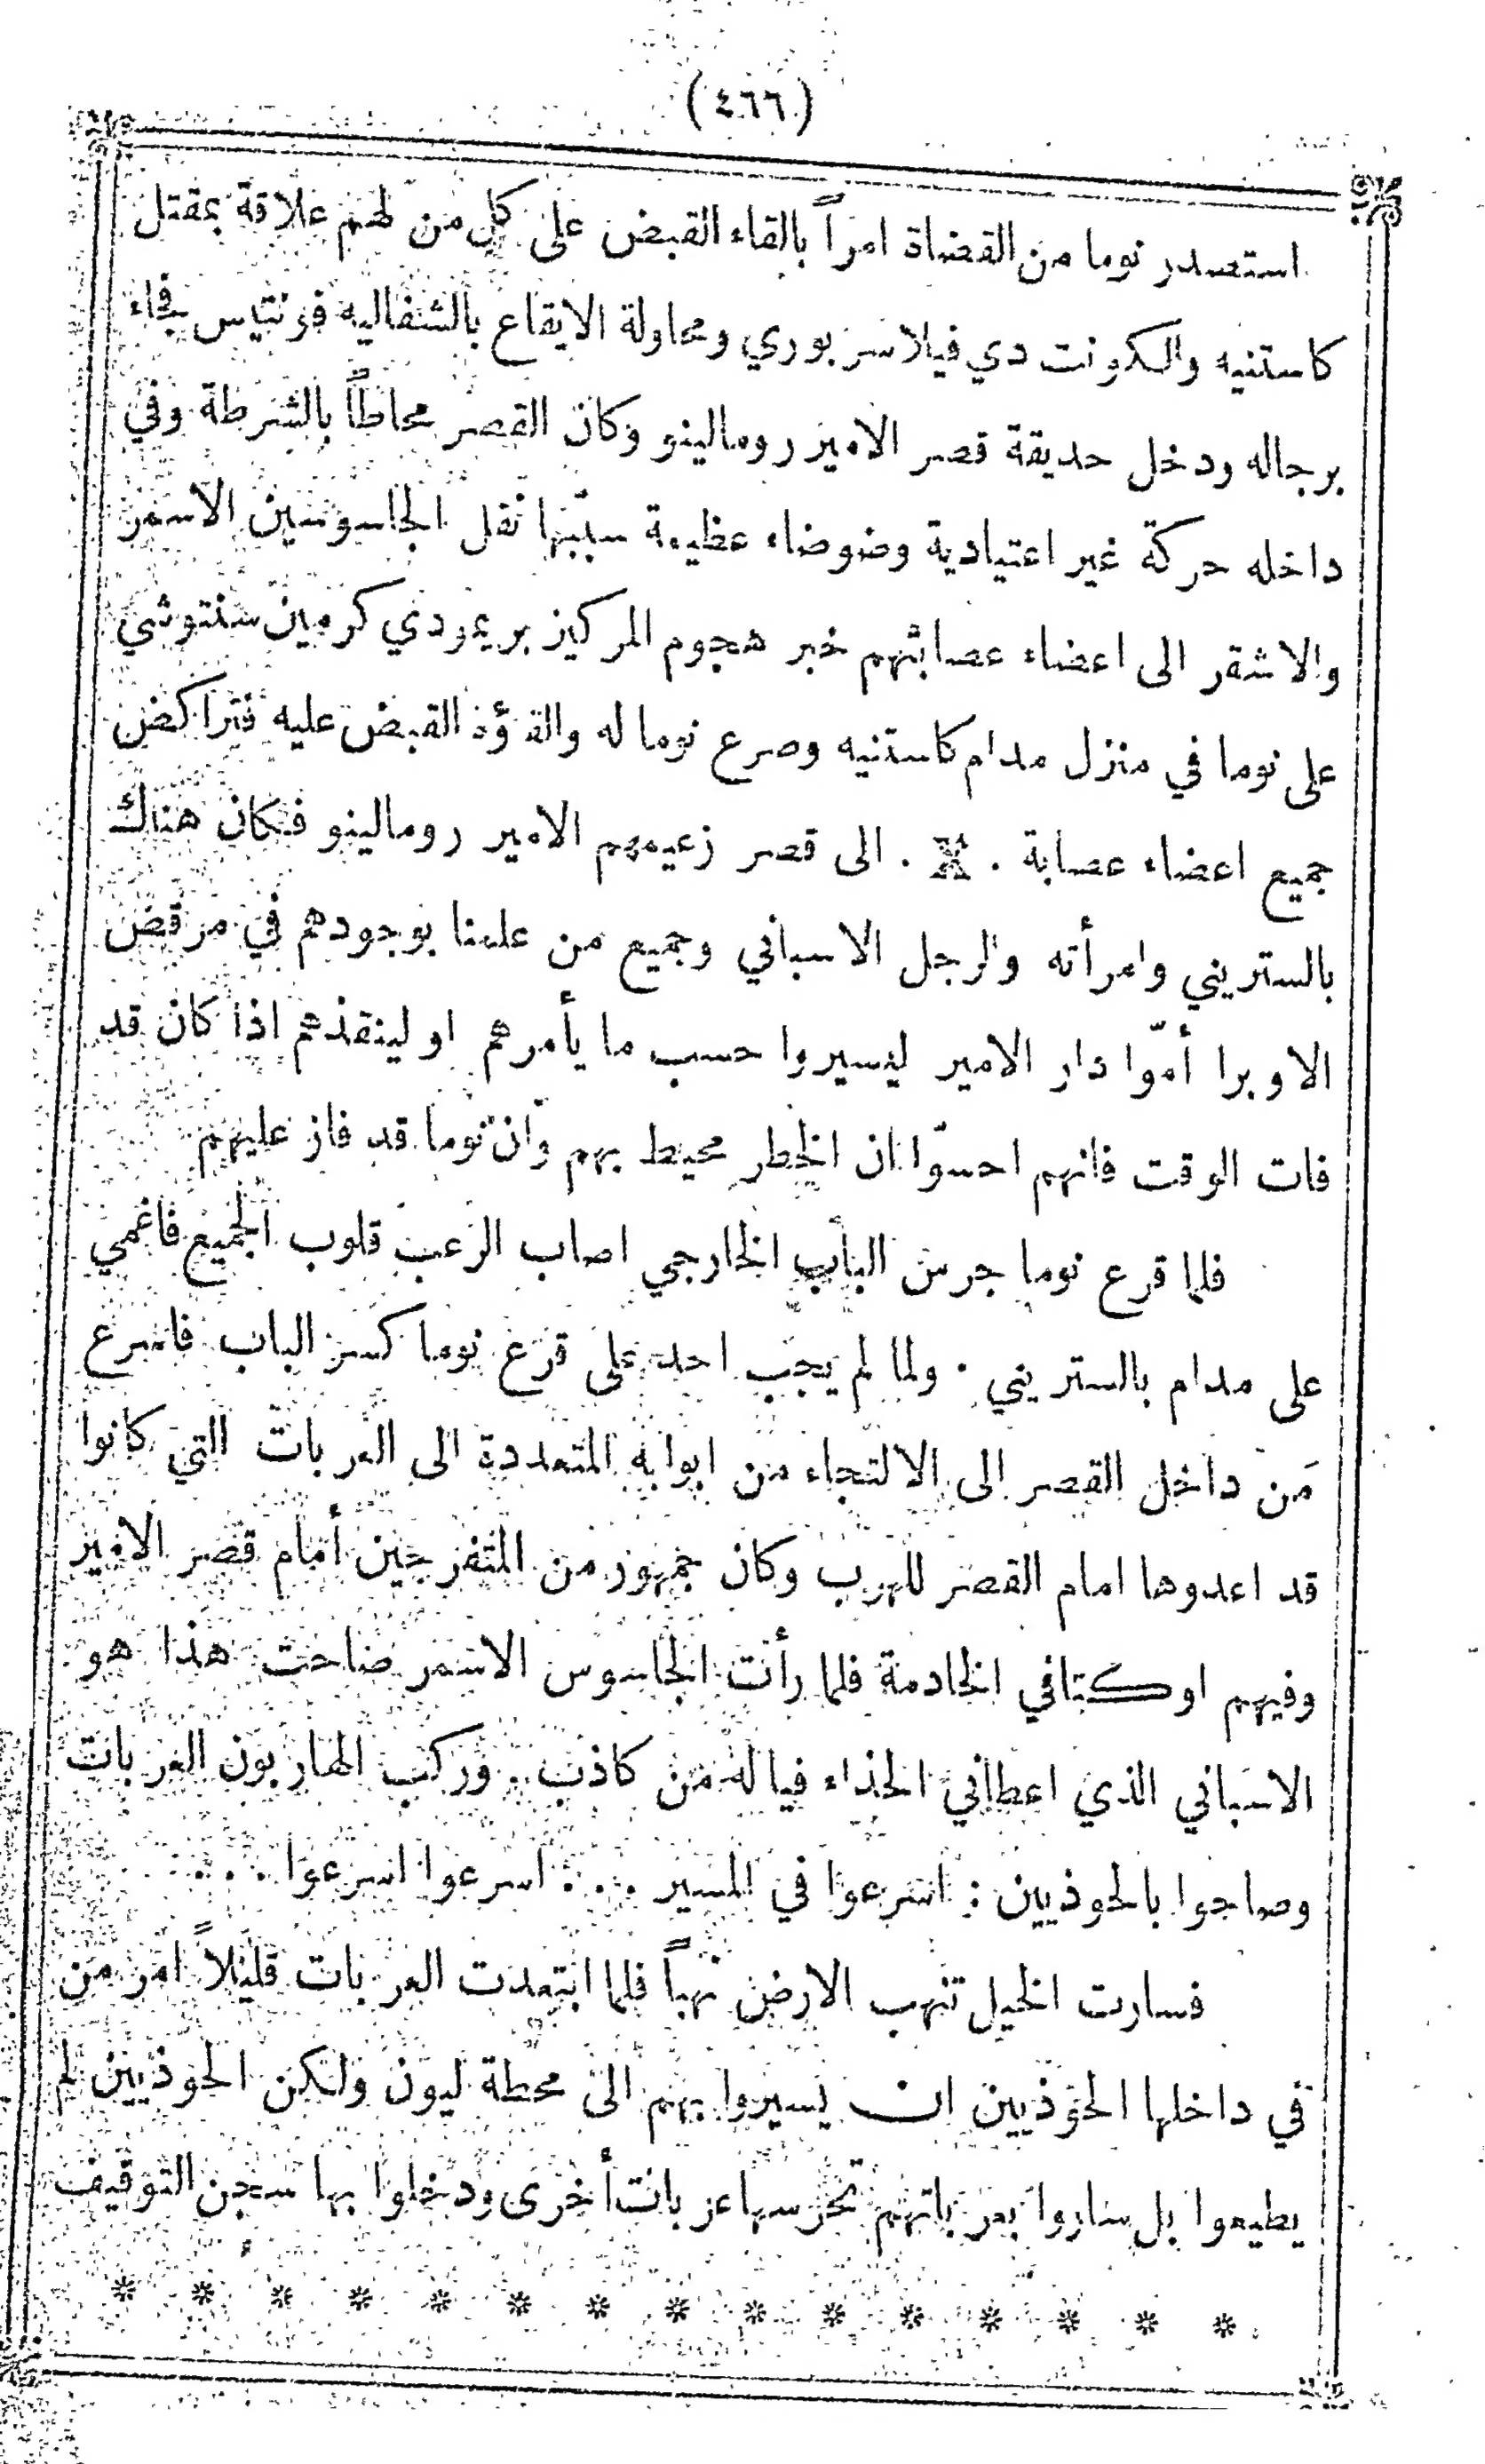 (٤٦٦)
استصدر نوما من القضاة امراً بالقاء القبض على كل من لهم علاقة بمقتل
كاستنيه والكونت دي فيلاسر بوري ومحاولة الايقاع بالشفاليه فرنتيس فجاء
برجاله ودخل حديقة قصر الامير رومالينو وكان القصر محاطاً بالشرطة وفي
داخله حركة غير اعتيادية وضوضاء عظيمة سببها نقل الجاسوسين الاسمر
والاشقر الى اعضاء عصابتهم خبر هجوم المركيز بريمودي كرمين سنتوشي
على نوما في منزل مدام كاستنيه وصرع نوما له والقوْه القبض عليه فتراكض
جميع اعضاء عصابة . X . الى قصر زعيمهم الامير رومالينو فكان هناك
بالستريني وامرأته والرجل الاسباني وجميع من علمنا بوجودهم في مرقص
الاوبرا أمّوا دار الامير ليسيروا حسب ما يأمرهم او لينقذهم اذا كان قد
فات الوقت فانهم احسّوا ان الخطر محيط بهم وان نوما قد فاز عليهم
فلما قرع نوما جرس الباب الخارجي اصاب الرعب قلوب الجميع فاغمي
على مدام بالستريني . ولما لم يجب احد على قرع نوما كسر الباب فاسرع
مَن داخل القصر الى الالتجاء من ابوابه المتعددة الى العربات التي كانوا
قد اعدوها امام القصر للهرب وكان جمهور من المتفرجين أمام قصر الامير
وفيهم اوكتافي الخادمة فلما رأت الجاسوس الاسمر صاحت هذا هو
الاسباني الذي اعطاني الحذاء فيا له من كاذب . وركب الهاربون العربات
وصاحوا بالحوذيين : اسرعوا في المسير . . . اسرعوا اسرعوا . . .
فسارت الخيل تنهب الارض نهباً فلما ابتعدت العربات قليلاً امر من
في داخلها الحوذيين ان يسيروا بهم الى محطة ليون ولكن الحوذيين لم
يطيعوا بل ساروا بعرباتهم تحرسها عربات أخرى ودخلوا بها سجن التوقيف
* * * * * * * * * * * * * * *